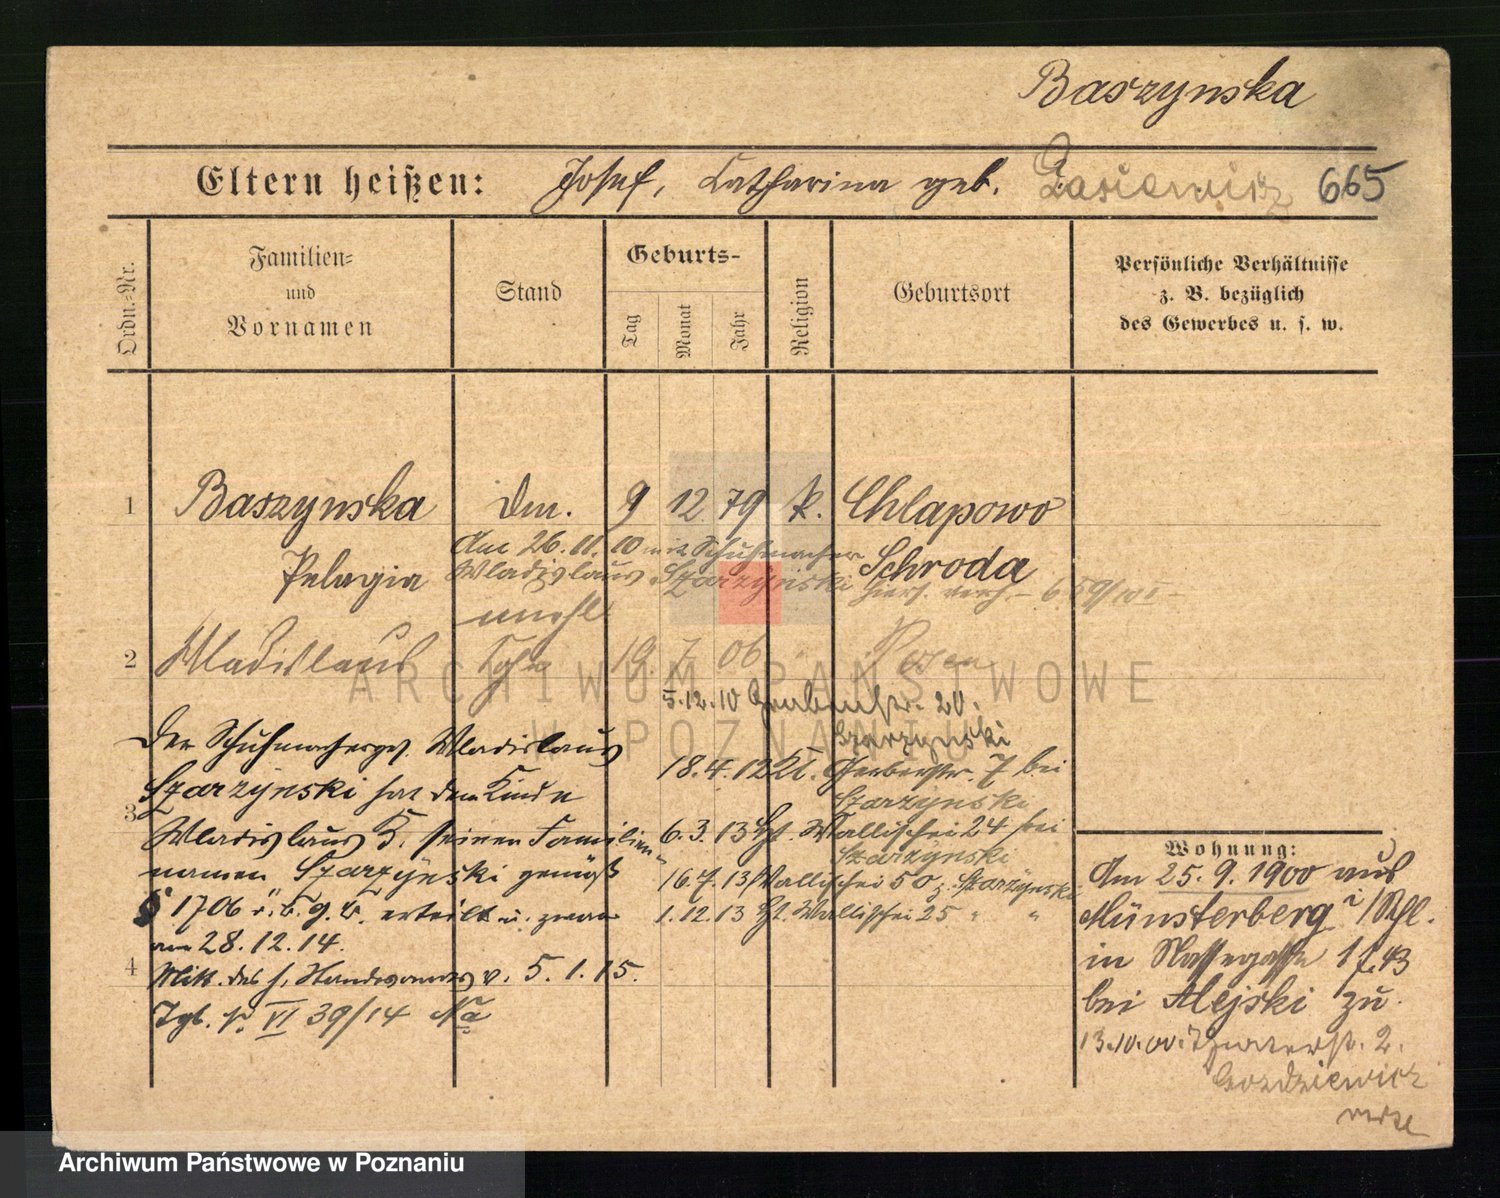 Baszynska
Eltern heißen: Josef, Catharina geb. 665
Ordn.-Nr.
Familien-
und
Vornamen
Stand
Geburts-
Tag
Monat
Jahr
Religion
Geburtsort
Persönliche Verhältnisse
z. B. bezüglich
des Gewerbes u. s. w.
1 Baszynska 9 12 79 k. Chlapowo
Am 26.11.10 mit Schuhmacher
Pelagia Wladislaus Szarzynski Schroda
2 Wladislaus 19. 7. 06 Posen
5.12.10 Grabenstr. 20.
Szarzynski
Der Schuhmacherges. Wladislaus
18.4.12 Gerberstr. 7 bei
Szarzynski hat dem Kinde
Szarzynski
3
Wladislaus B. seinen Familien-
6.3.13 Wallischei 24 bei
Szarzynski
namen Szarzynski gemäß
16.7.13 Wallischei 50 Szarzynski
§ 1706 B.G.B. erteilt u. zwar
1.12.13 Wallischei 25 " "
am 28.12.14.
4
Mitt. des Standesamtes v. 5.1.15.
Tgb. VI 39/14
Wohnung:
Am 25.9.1900 aus
Münsterberg i/Schl.
in
bei Alejski zu.
13.10.00. 2.
Gozdziewicz
ARCHIWUM PAŃSTWOWE
W POZNANIU
Archiwum Państwowe w Poznaniu